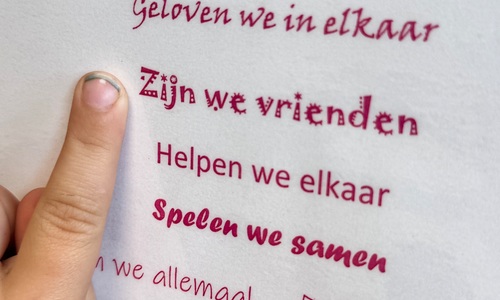 Geloven we in elkaar
Zijn we vrienden
Helpen we elkaar
Spelen we samen
we allemaal